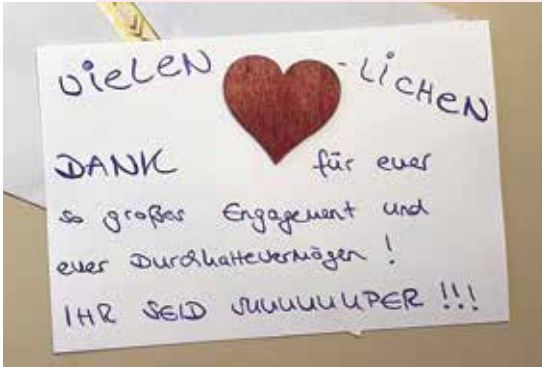 Vielen -lichen
DANK für euer
so großes Engagement und
euer Durchhaltevermögen !
IHR SEID SUUUUUUPER !!!